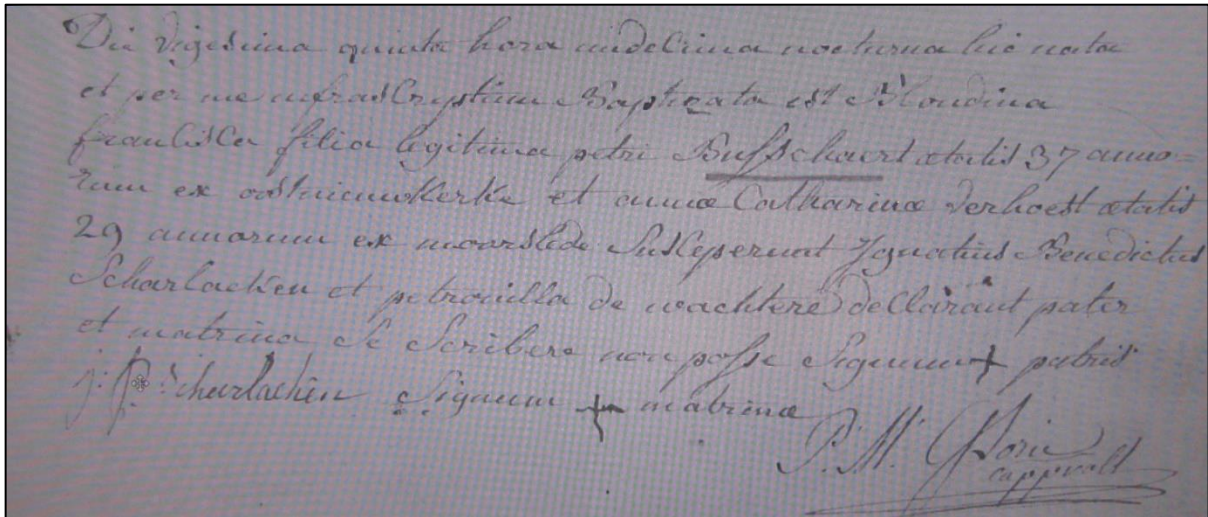 Die vigesima quinta hora undecima nocturna hic nata
et per me infrascryptum Baptizata est Blondina
francisca filia legitima petri Bufschaert ætatis 37 anno=
rum ex oostnieuwkerke et annæ Catharinæ verhoest ætatis
29 annorum ex moorslede Susceperunt Ignatius Benedictus
Scharlacken et petronilla de wachtere declarant pater
et matrina se Scribere non posse Signum + patris
j: B: Scharlacken Signum + matrinæ
P: M: